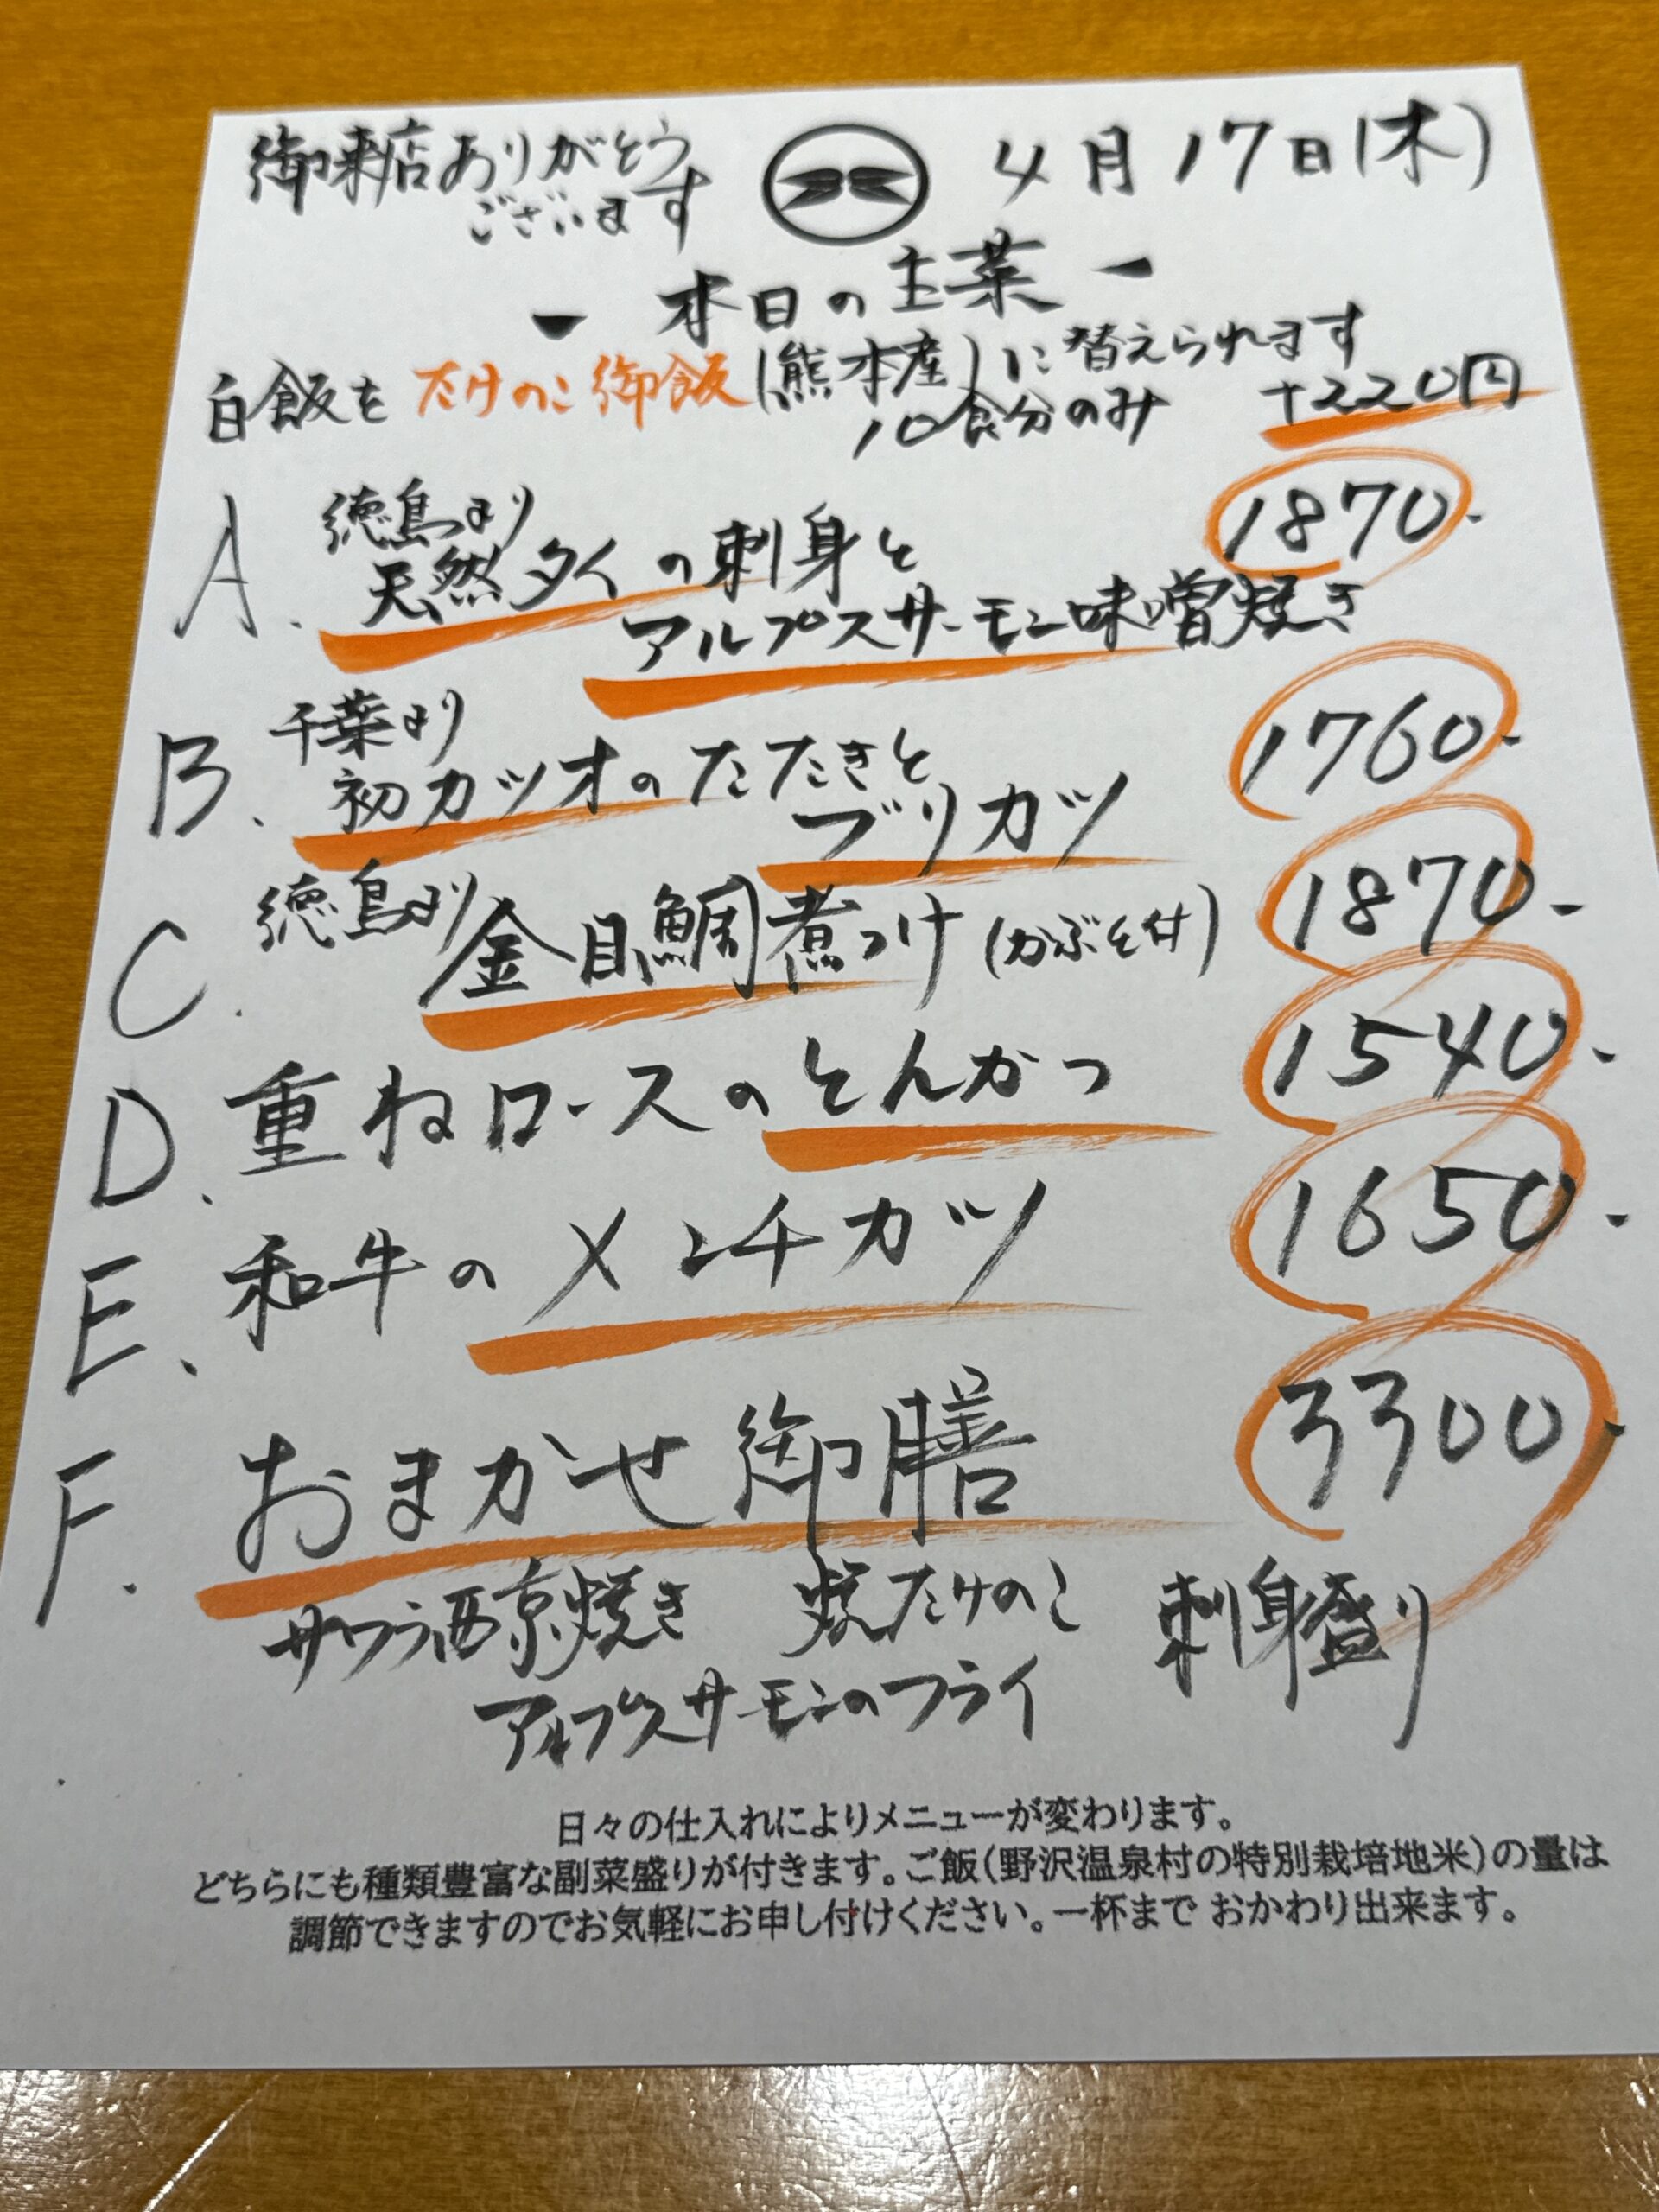 御来店ありがとう
ございます
4月17日(木)
ー 本日の主菜 ー
白飯を たけのこ御飯(熊本産)に替えられます
10食分のみ +220円
A. 徳島より
天然タイの刺身と
アルプスサーモン味噌焼き
1870.
B. 千葉より
初カツオのたたきと
ブリカツ
1760.
C. 徳島より
金目鯛煮つけ(かぶと付)
1870.
D. 重ねロースのとんかつ
1540.
E. 和牛のメンチカツ
1650.
F. おまかせ御膳
3300.
サワラ西京焼き 焼たけのこ 刺身盛り
アルプスサーモンのフライ
日々の仕入れによりメニューが変わります。
どちらにも種類豊富な副菜盛りが付きます。ご飯(野沢温泉村の特別栽培地米)の量は
調節できますのでお気軽にお申し付けください。一杯まで おかわり出来ます。